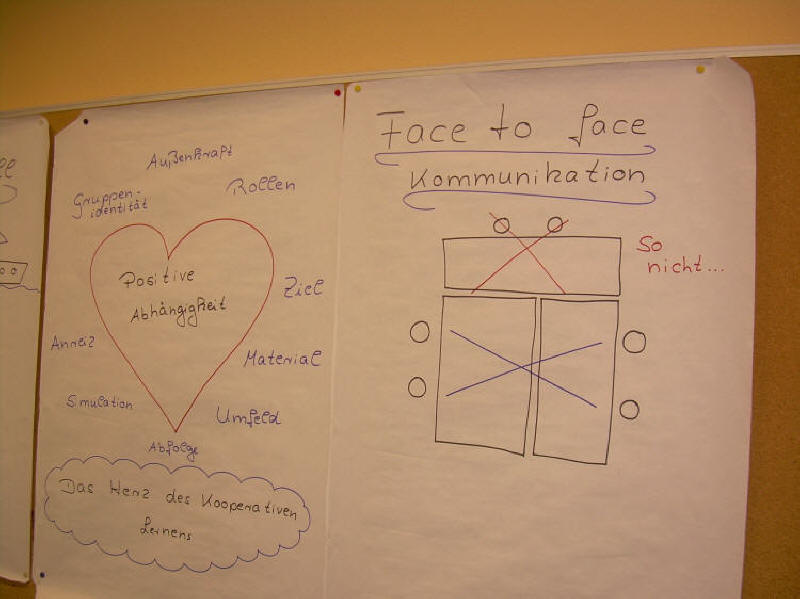 Außenkraft
Gruppen-
identität
Rollen
Positive
Abhängigkeit
Ziel
Anreiz
Material
Simulation
Umfeld
Abfolge
Das Herz des Kooperativen
Lernens
Face to face
Kommunikation
So
nicht...